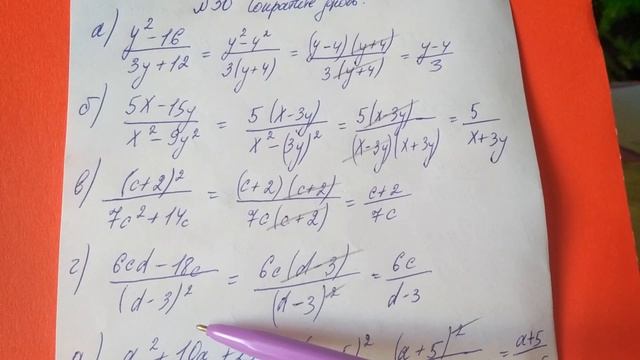 N 30 Сократите дробь.
а) (y² - 16)/(3y + 12) = (y² - 4²)/(3(y+4)) = ((y-4)(y+4))/(3(y+4)) = (y-4)/3
б) (5x - 15y)/(x² - 9y²) = (5(x-3y))/(x² - (3y)²) = (5(x-3y))/((x-3y)(x+3y)) = 5/(x+3y)
в) (c+2)²/(7c² + 14c) = ((c+2)(c+2))/(7c(c+2)) = (c+2)/(7c)
г) (6cd - 18c)/(d-3)² = (6c(d-3))/(d-3)² = 6c/(d-3)
д) a² + 10a + (a+5)² = a+5